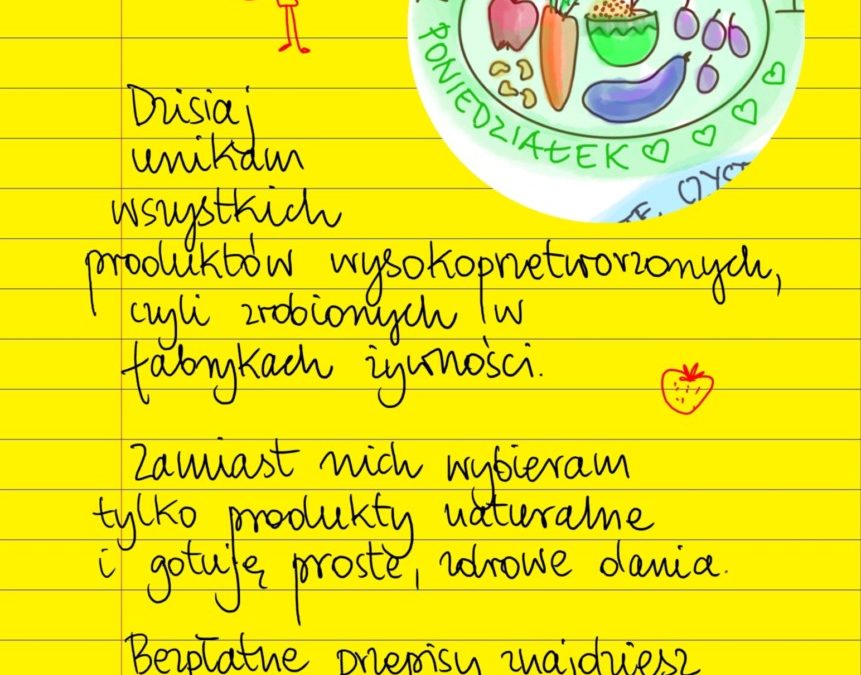 PONIEDZIAŁEK
Dzisiaj
unikam
wszystkich
produktów wysokoprzetworzonych,
czyli zrobionych w
fabrykach żywności.
Zamiast nich wybieram
tylko produkty naturalne
i gotuję proste, zdrowe dania.
Bezpłatne przepisy znajdziesz